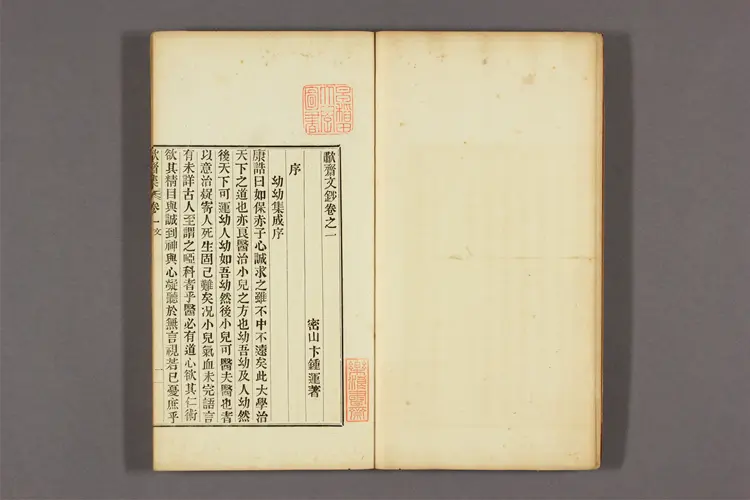 齋文鈔卷之一
密山卞鍾運著
序
幼幼集成序
康誥曰如保赤子心誠求之雖不中不遠矣此大學治
天下之道也亦良醫治小兒之方也幼吾幼及人幼然
後天下可運幼人幼如吾幼然後小兒可醫夫醫也者
以意治疑寄人死生固已難矣况小兒氣血未完語言
有未詳古人至謂之啞科者乎醫必有道心欲其仁術
欲其精目與誠到神與心凝聽於無言視若己憂庶乎
卷一
文
一
早稲田大學圖書